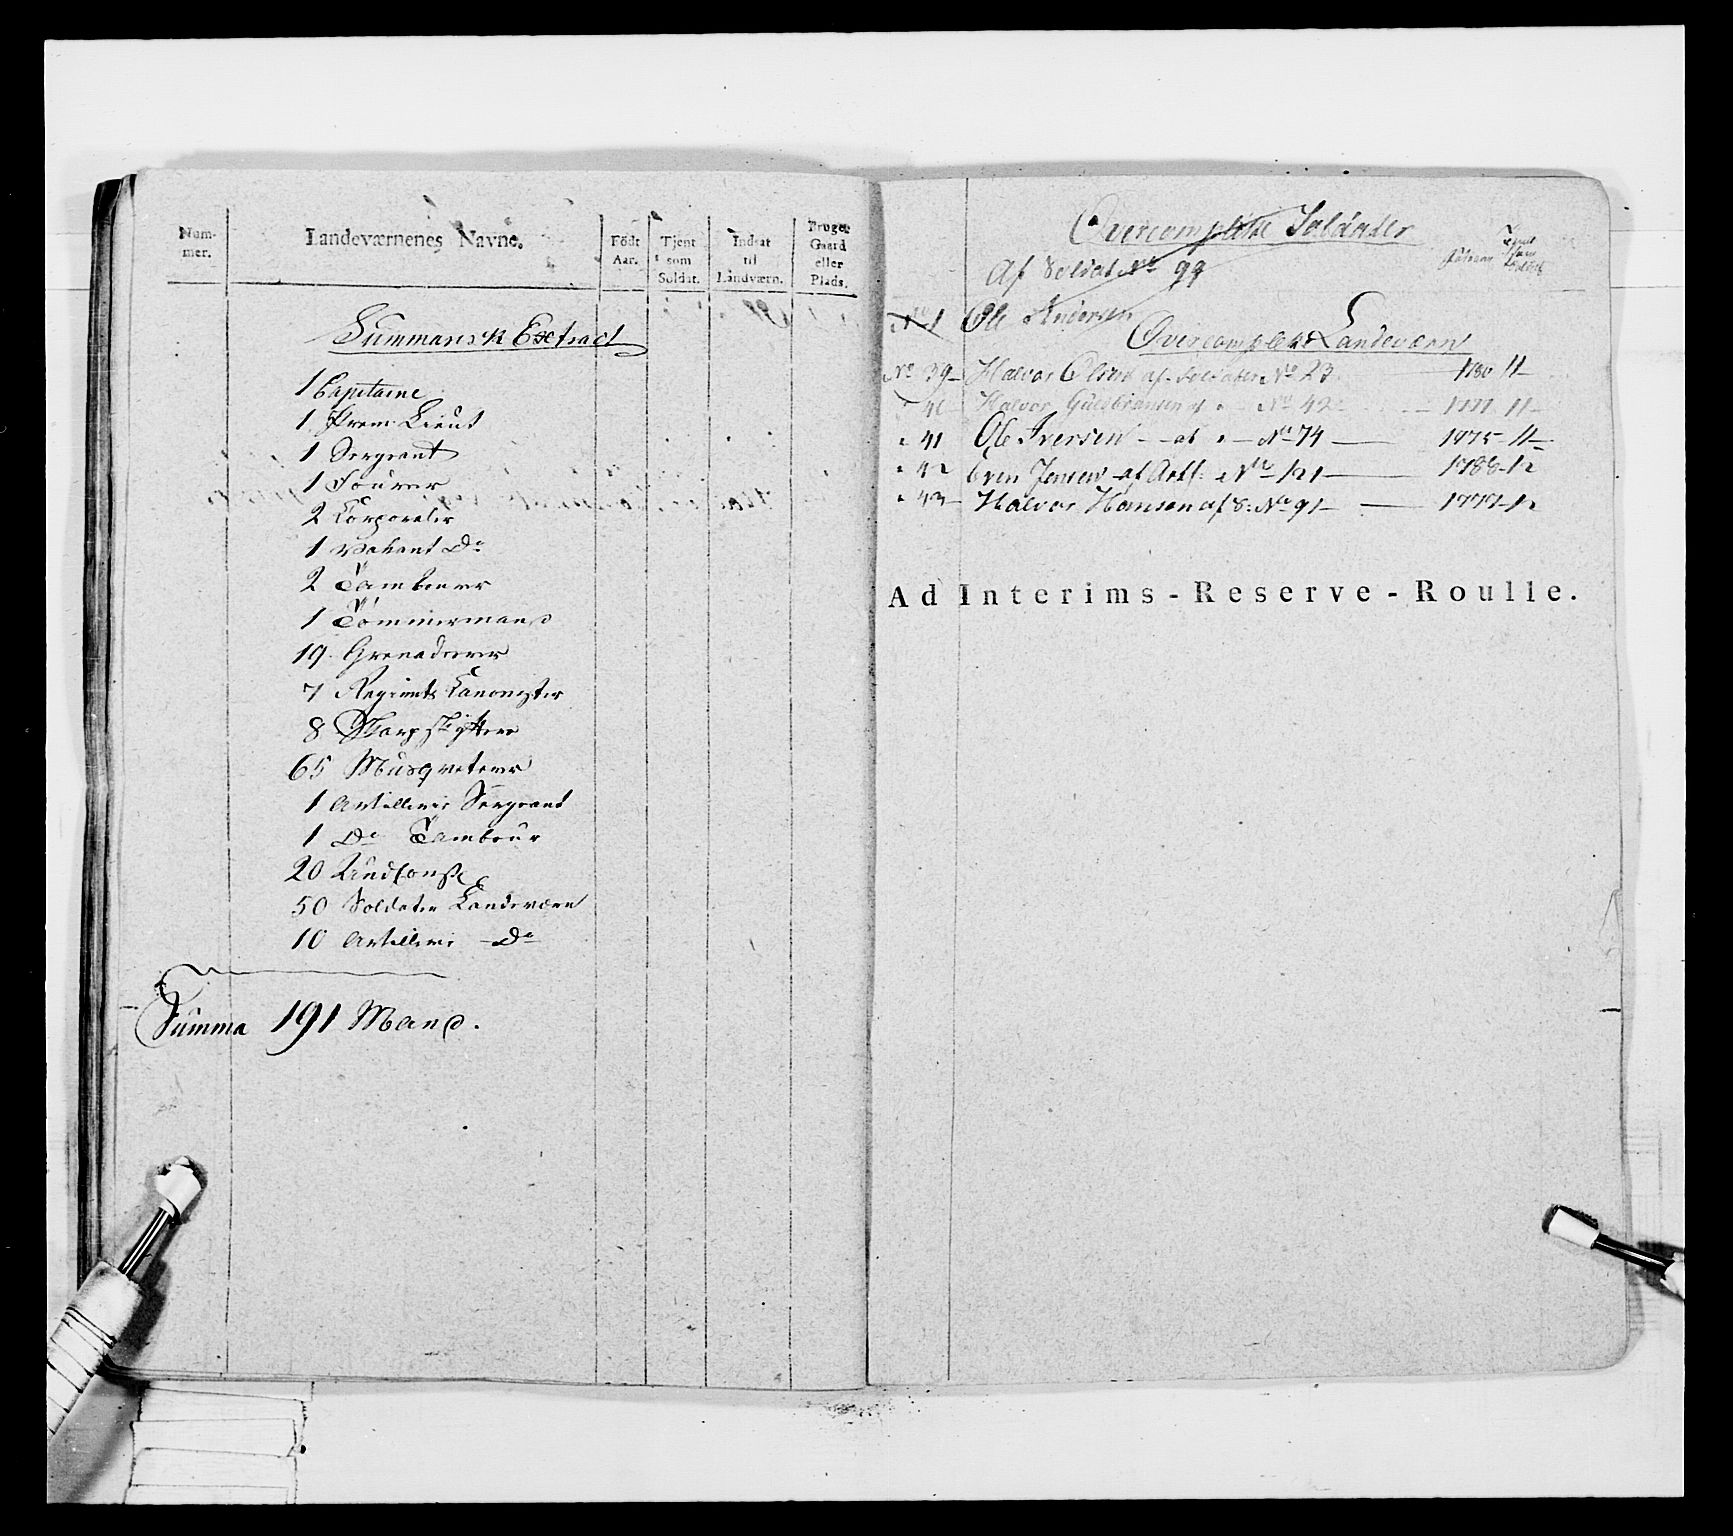 Num-
mer.
Landeværnenes Navne.
Født
Aar.
Tjent
som
Soldat.
Indsat
til
Landværn.
Bruger
Gaard
eller
Plads.
Summarisk Extract
1 Capitaine
1 Prem: Lieut
1 Sergeant
1 Fourer
2 Corporaler
1 Vakant Do
2 Tambourer
1 Tömmermand
19 Grenaderer
7 Regiments Canonister
8 Skarpskyttere
65 Musqueterer
1 Artillerie Sergeant
1 Do Tambour
20 Kudskouse
50 Soldater Landeværn
10 Artilleri - Do
Summa 191 Mand.
Overcomplette Soldater
Af Soldat No 99
No 1 Ole Andersen
Overcomplette Landeværn
No 39 - Halvor Olsen af Soldater No 23 1780 11 -
" 40 Halvor Guldbransen af " - No 42 - 1777 11 -
" 41 Ole Iversen - - af " - No 74 - 1775 - 11 -
" 42 Even Jensen - af Artl. No 121 - 1788 - 12
" 43 - Halvor Hansen af S: No 91 - 1777 - 12
Ad Interims - Reserve - Roulle.